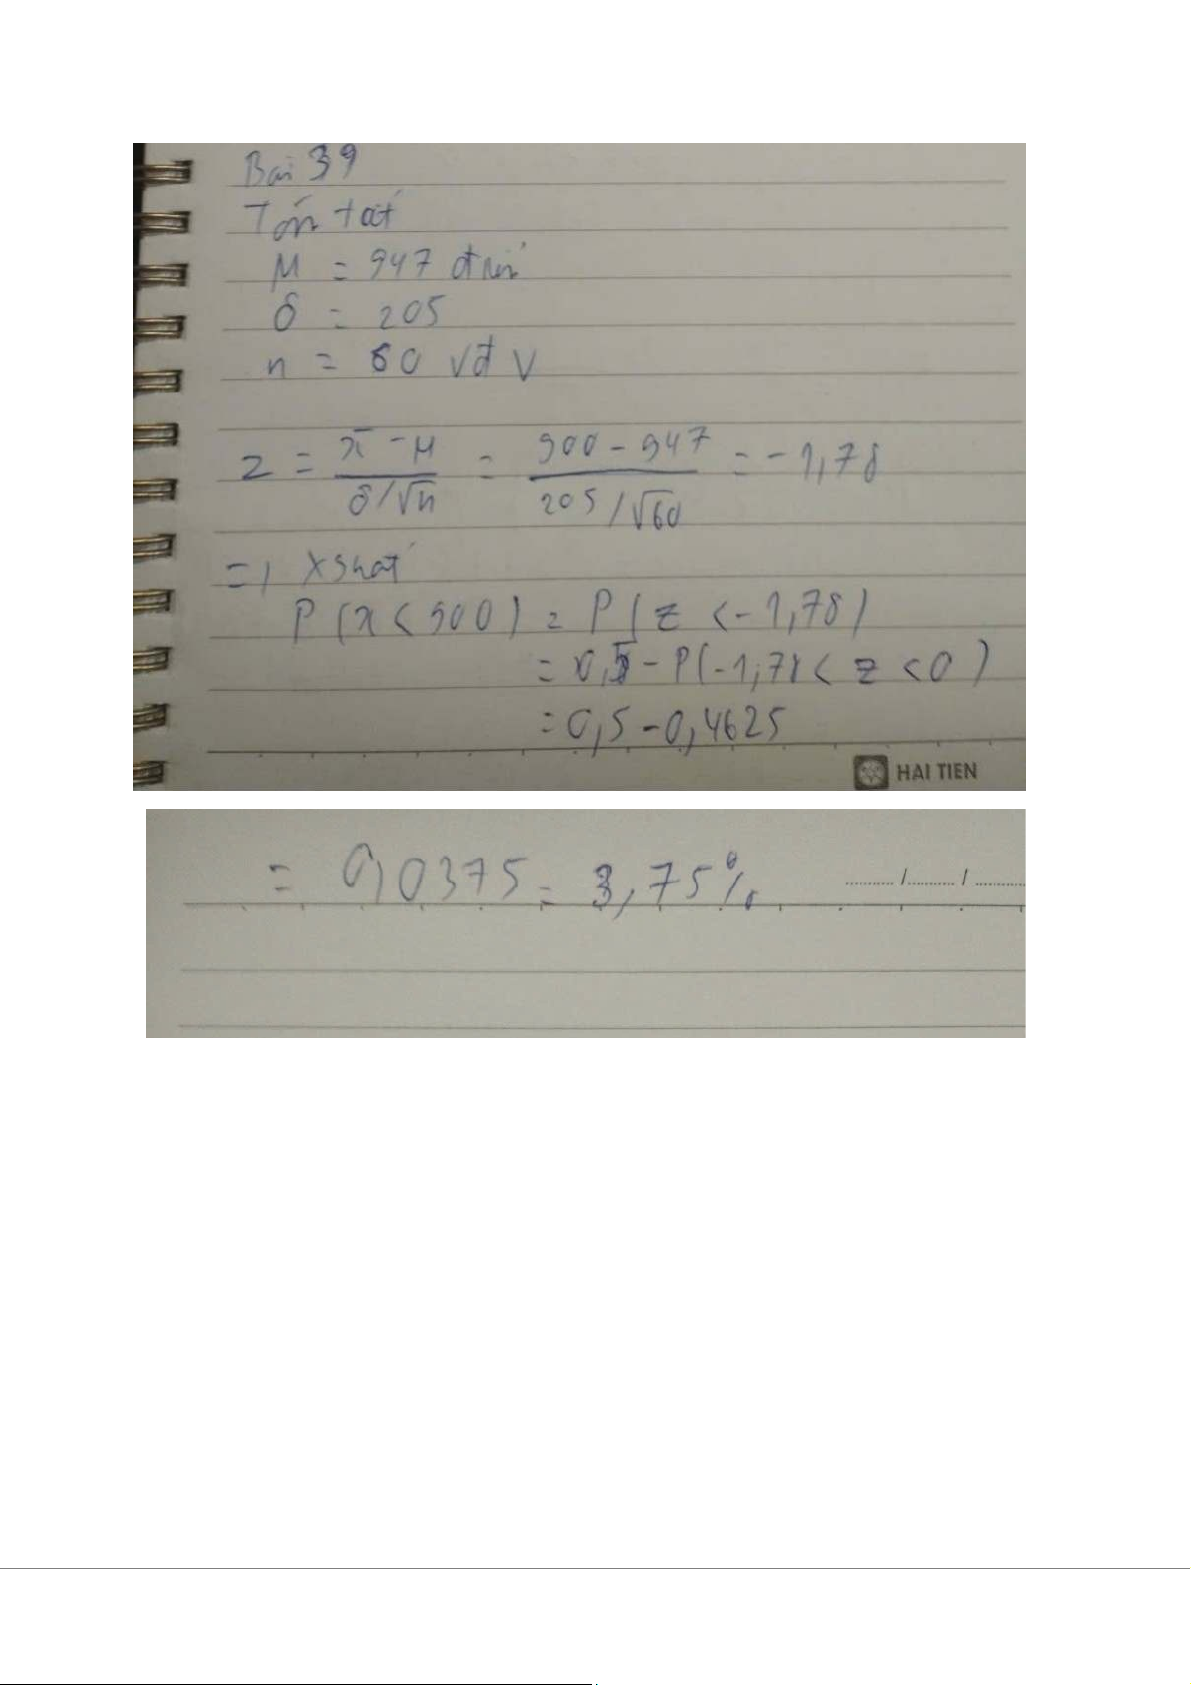 Bài 39
Tóm tắt
μ = 947
δ = 205
n = 60 vđv
z = (x̄ - μ)/(δ/√n) = (900 - 947)/(205/√60) = -1,78
=) Xsuất
P(x < 900) = P(z < -1,78)
= 0,5 - P(-1,78 < z < 0)
= 0,5 - 0,4625
HAI TIEN
= 0,0375 = 3,75%
........... / ........... / ...........